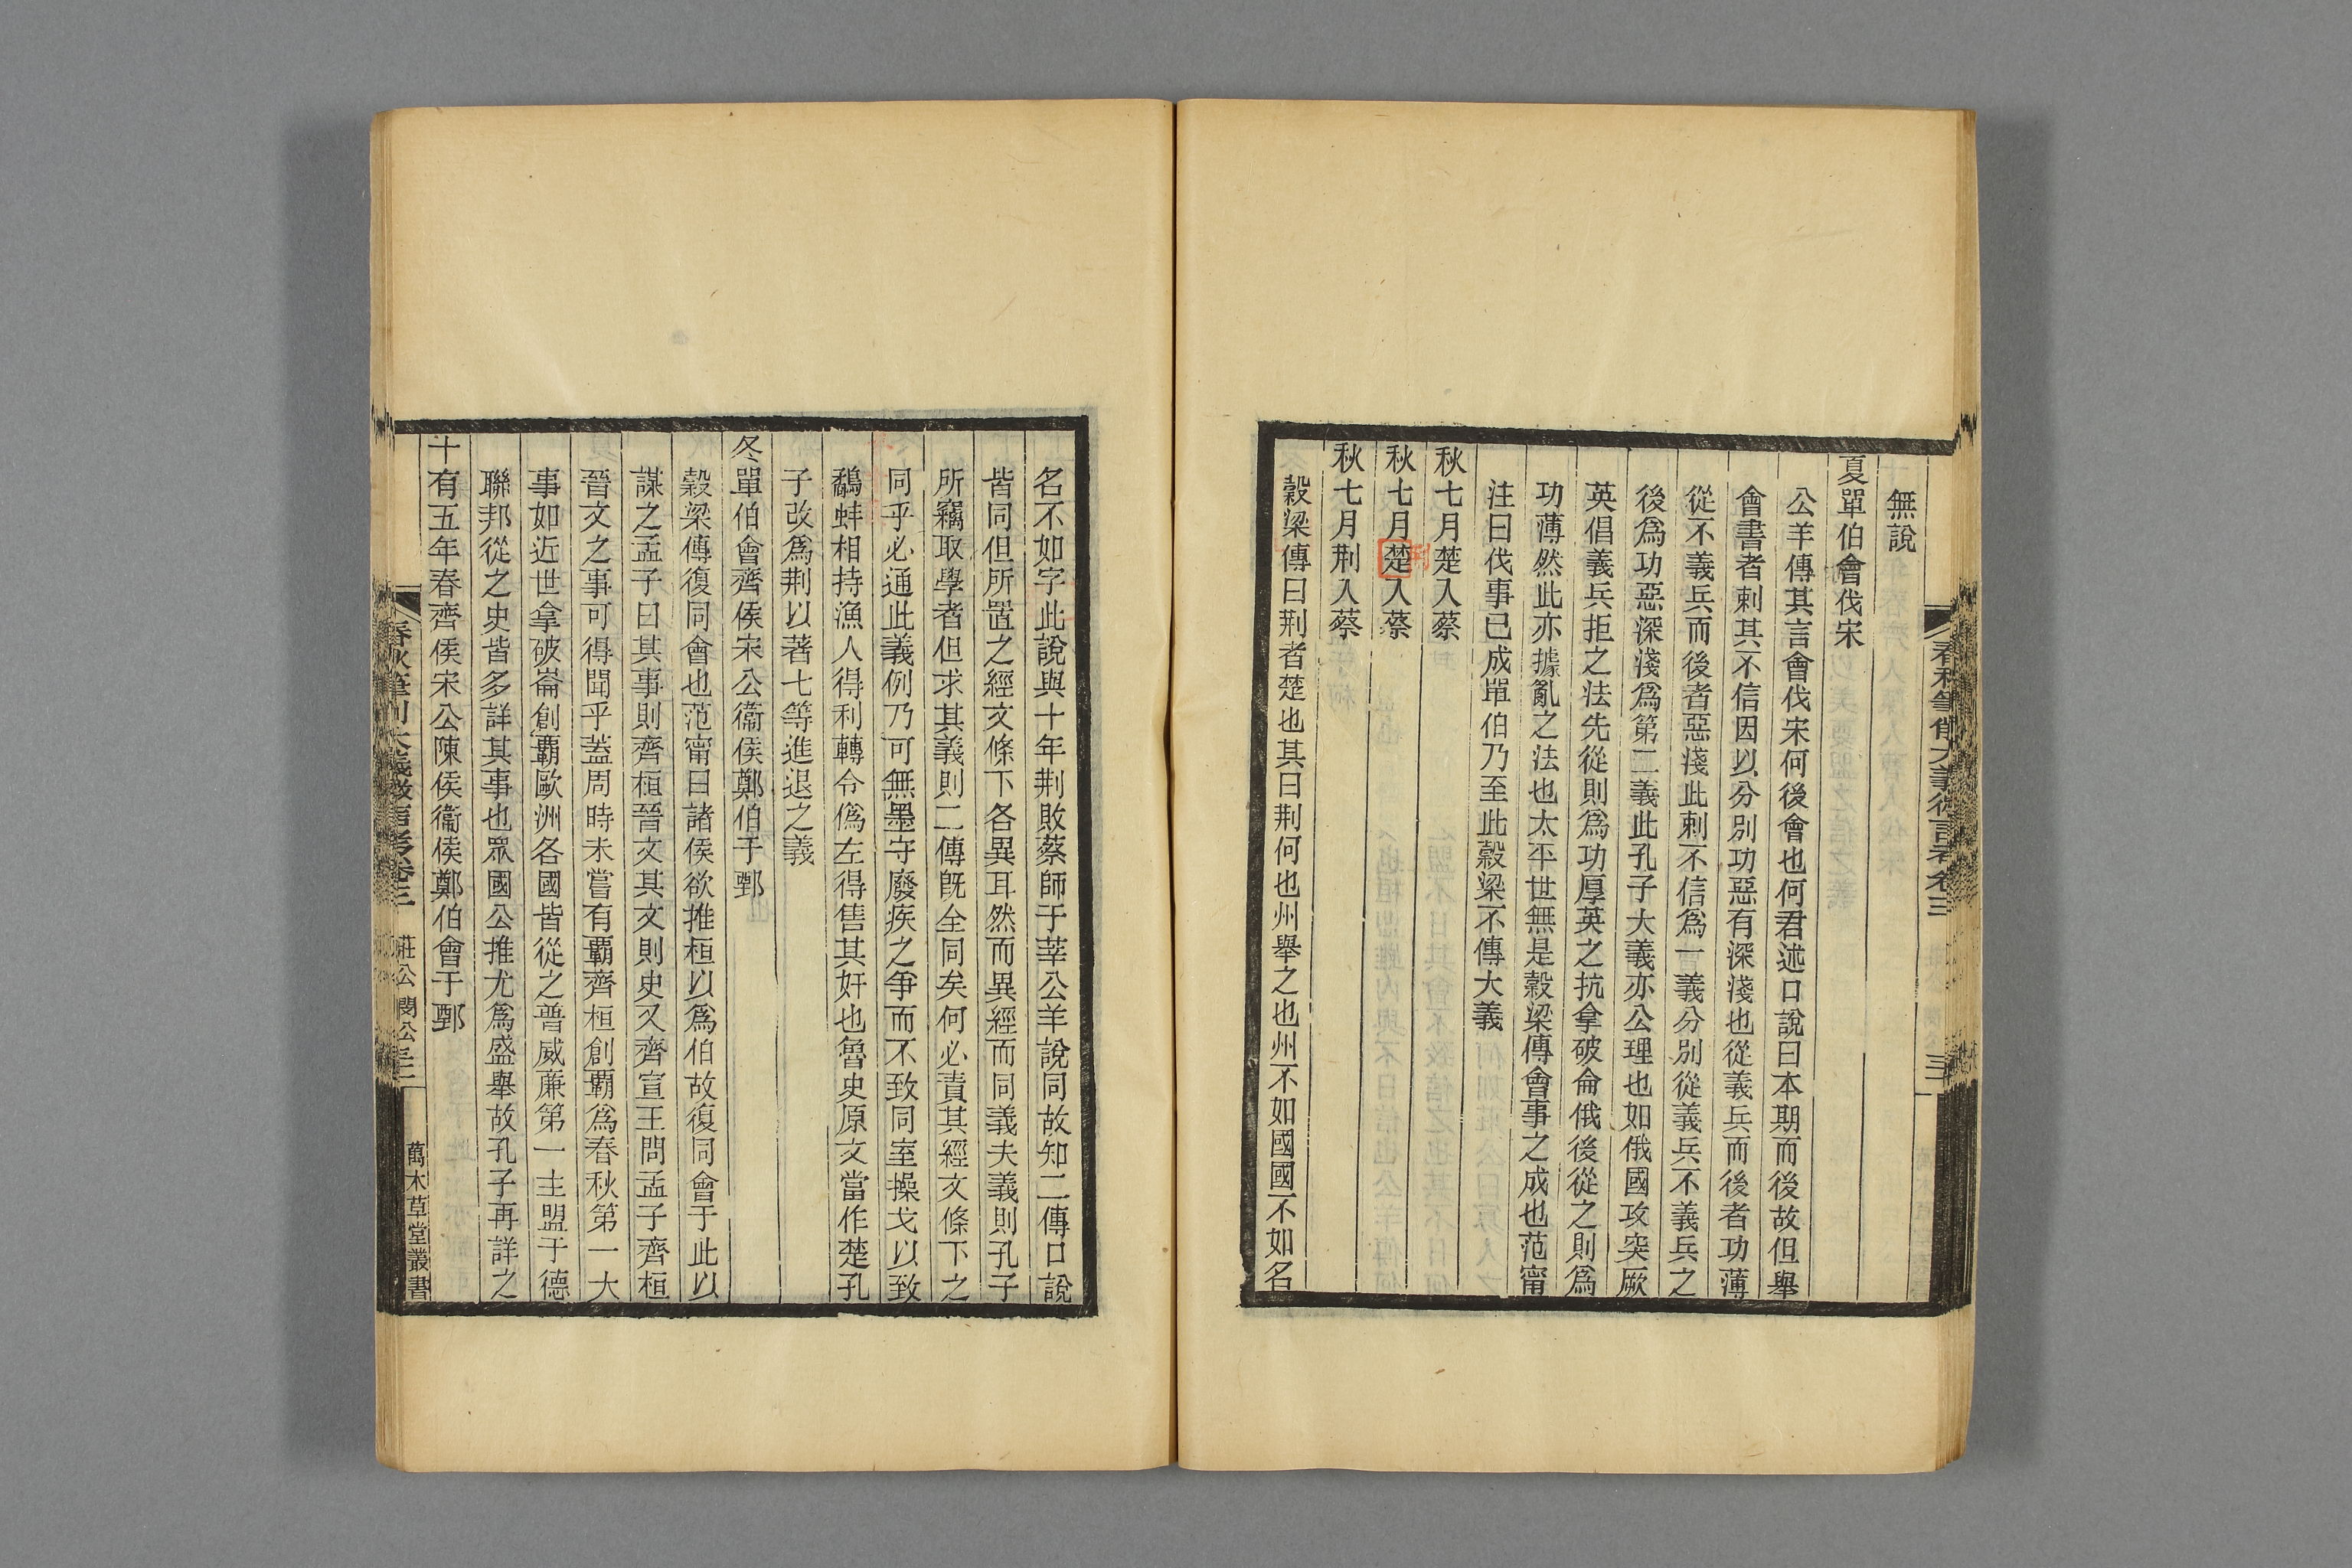 無說
夏單伯會伐宋
公羊傳其言會伐宋何後會也何君述口說曰本期而後故但舉
會書者刺其不信因以分別功惡有深淺也從義兵而後者功薄
從不義兵而後者惡淺此刺不信爲一義分別從義兵不義兵之
後爲功惡深淺爲第二義此孔子大義亦公理也如俄國攻突厥
英倡義兵拒之法先從則爲功厚英之抗拿破侖俄後從之則爲
功薄然此亦據亂之法也太平世無是穀梁傳會事之成也范甯
注曰伐事已成單伯乃至此穀梁不傳大義
秋七月楚入蔡
秋七月楚入蔡
荆
秋七月荆入蔡
穀梁傳曰荆者楚也其曰荆何也州舉之也州不如國國不如名
名不如字此說與十年荆敗蔡師于莘公羊說同故知二傳口說
皆同但所置之經文條下各異耳然而異經而同義夫義則孔子
所竊取學者但求其義則二傳既全同矣何必責其經文條下之
同乎必通此義例乃可無墨守廢疾之爭而不致同室操戈以致
鷸蚌相持漁人得利轉令僞左得售其奸也魯史原文當作楚孔
子改爲荆以著七等進退之義
冬單伯會齊侯宋公衞侯鄭伯于鄄
穀梁傳復同會也范甯曰諸侯欲推桓以爲伯故復同會于此以
謀之孟子曰其事則齊桓晉文其文則史又齊宣王問孟子齊桓
晉文之事可得聞乎蓋周時未嘗有霸齊桓創霸爲春秋第一大
事如近世拿破崙創霸歐洲各國皆從之普威廉第一主盟于德
聯邦從之史皆多詳其事也眾國公推尤爲盛舉故孔子再詳之
十有五年春齊侯宋公陳侯衞侯鄭伯會于鄄
春秋筆削大義微言考卷三 莊公 閔公
萬木草堂叢書